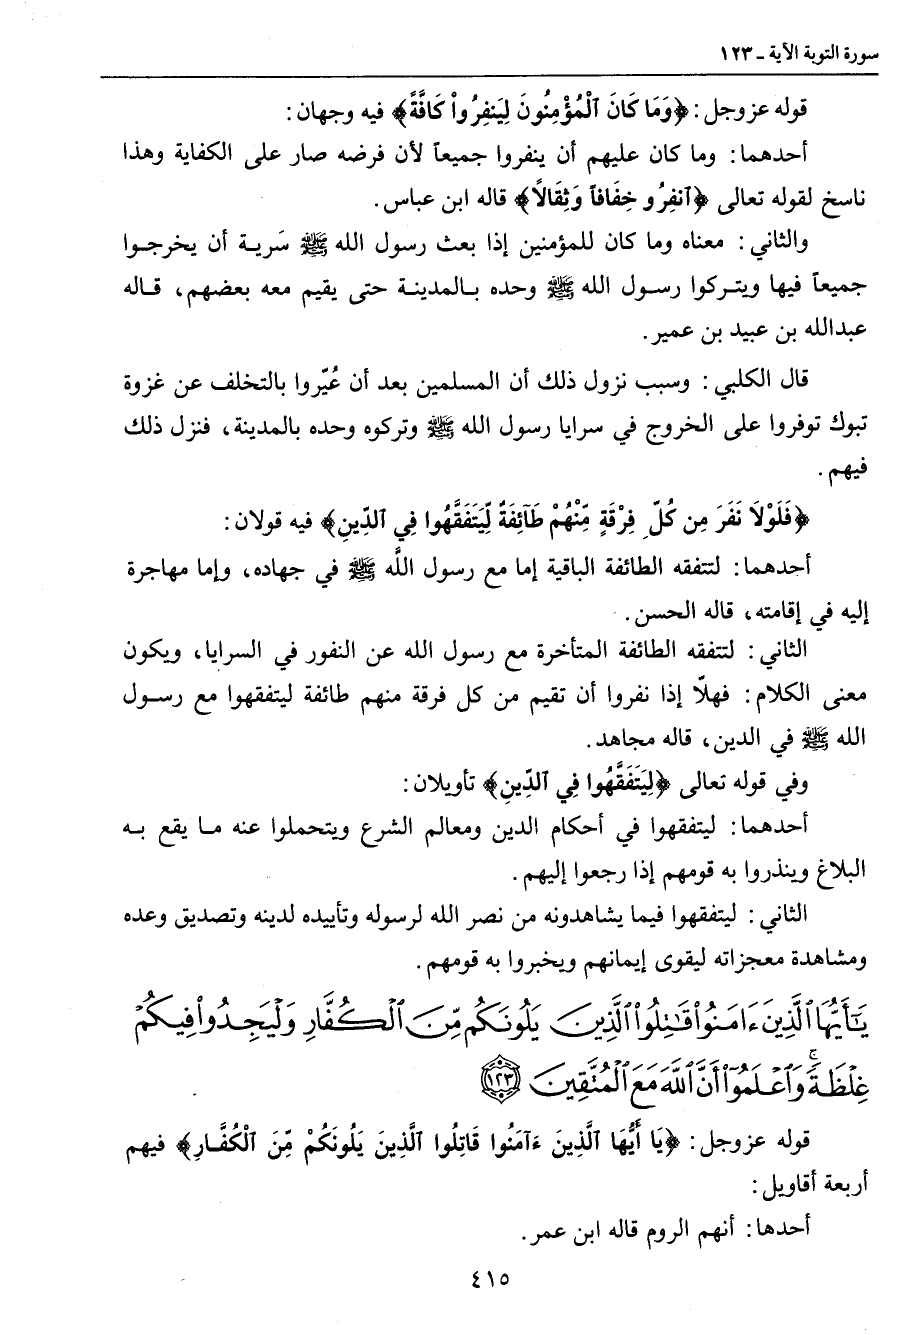 سورة التوبة الآية ـ ١٢٣
قوله عز وجل: ﴿وَمَا كَانَ ٱلْمُؤْمِنُونَ لِيَنْفِرُواْ كَافَّةً﴾ فيه وجهان:
أحدهما: وما كان عليهم أن ينفروا جميعاً لأن فرضه صار على الكفاية وهذا
ناسخ لقوله تعالى ﴿ٱنفِرُو خِفَافاً وَثِقَالًا﴾ قاله ابن عباس.
والثاني: معناه وما كان للمؤمنين إذا بعث رسول الله ﷺ سَرية أن يخرجوا
جميعاً فيها ويتركوا رسول الله ﷺ وحده بالمدينة حتى يقيم معه بعضهم، قاله
عبدالله بن عبيد بن عمير.
قال الكلبي: وسبب نزول ذلك أن المسلمين بعد أن عُيّروا بالتخلف عن غزوة
تبوك توفروا على الخروج في سرايا رسول الله ﷺ وتركوه وحده بالمدينة، فنزل ذلك
فيهم.
﴿فَلَوْلَا نَفَرَ مِن كُلِّ فِرْقَةٍ مِّنْهُمْ طَآئِفَةٌ لِّيَتَفَقَّهُوا فِي ٱلدِّينِ﴾ فيه قولان:
أحدهما: لتتفقه الطائفة الباقية إما مع رسول اللَّه ﷺ في جهاده، وإما مهاجرة
إليه في إقامته، قاله الحسن.
الثاني: لتتفقه الطائفة المتأخرة مع رسول الله عن النفور في السرايا، ويكون
معنى الكلام: فهلاّ إذا نفروا أن تقيم من كل فرقة منهم طائفة ليتفقهوا مع رسول
الله ﷺ في الدين، قاله مجاهد.
وفي قوله تعالى ﴿لِيَتَفَقَّهُوا فِي ٱلدِّينِ﴾ تأويلان:
أحدهما: ليتفقهوا في أحكام الدين ومعالم الشرع ويتحملوا عنه ما يقع به
البلاغ وينذروا به قومهم إذا رجعوا إليهم.
الثاني: ليتفقهوا فيما يشاهدونه من نصر الله لرسوله وتأييده لدينه وتصديق وعده
ومشاهدة معجزاته ليقوى إيمانهم ويخبروا به قومهم.
يَٰٓأَيُّهَا ٱلَّذِينَ ءَامَنُواْ قَٰتِلُواْ ٱلَّذِينَ يَلُونَكُم مِّنَ ٱلْكُفَّارِ وَلْيَجِدُواْ فِيكُمْ
غِلْظَةً ۚ وَٱعْلَمُوٓاْ أَنَّ ٱللَّهَ مَعَ ٱلْمُتَّقِينَ ﴿١٢٣﴾
قوله عز وجل: ﴿يَا أَيُّهَا ٱلَّذِينَ ءَآمَنُوا قَاتِلُوا ٱلَّذِينَ يَلُونَكُمْ مِّنَ ٱلْكُفَّارِ﴾ فيهم
أربعة أقاويل:
أحدها: أنهم الروم قاله ابن عمر.
٤١٥